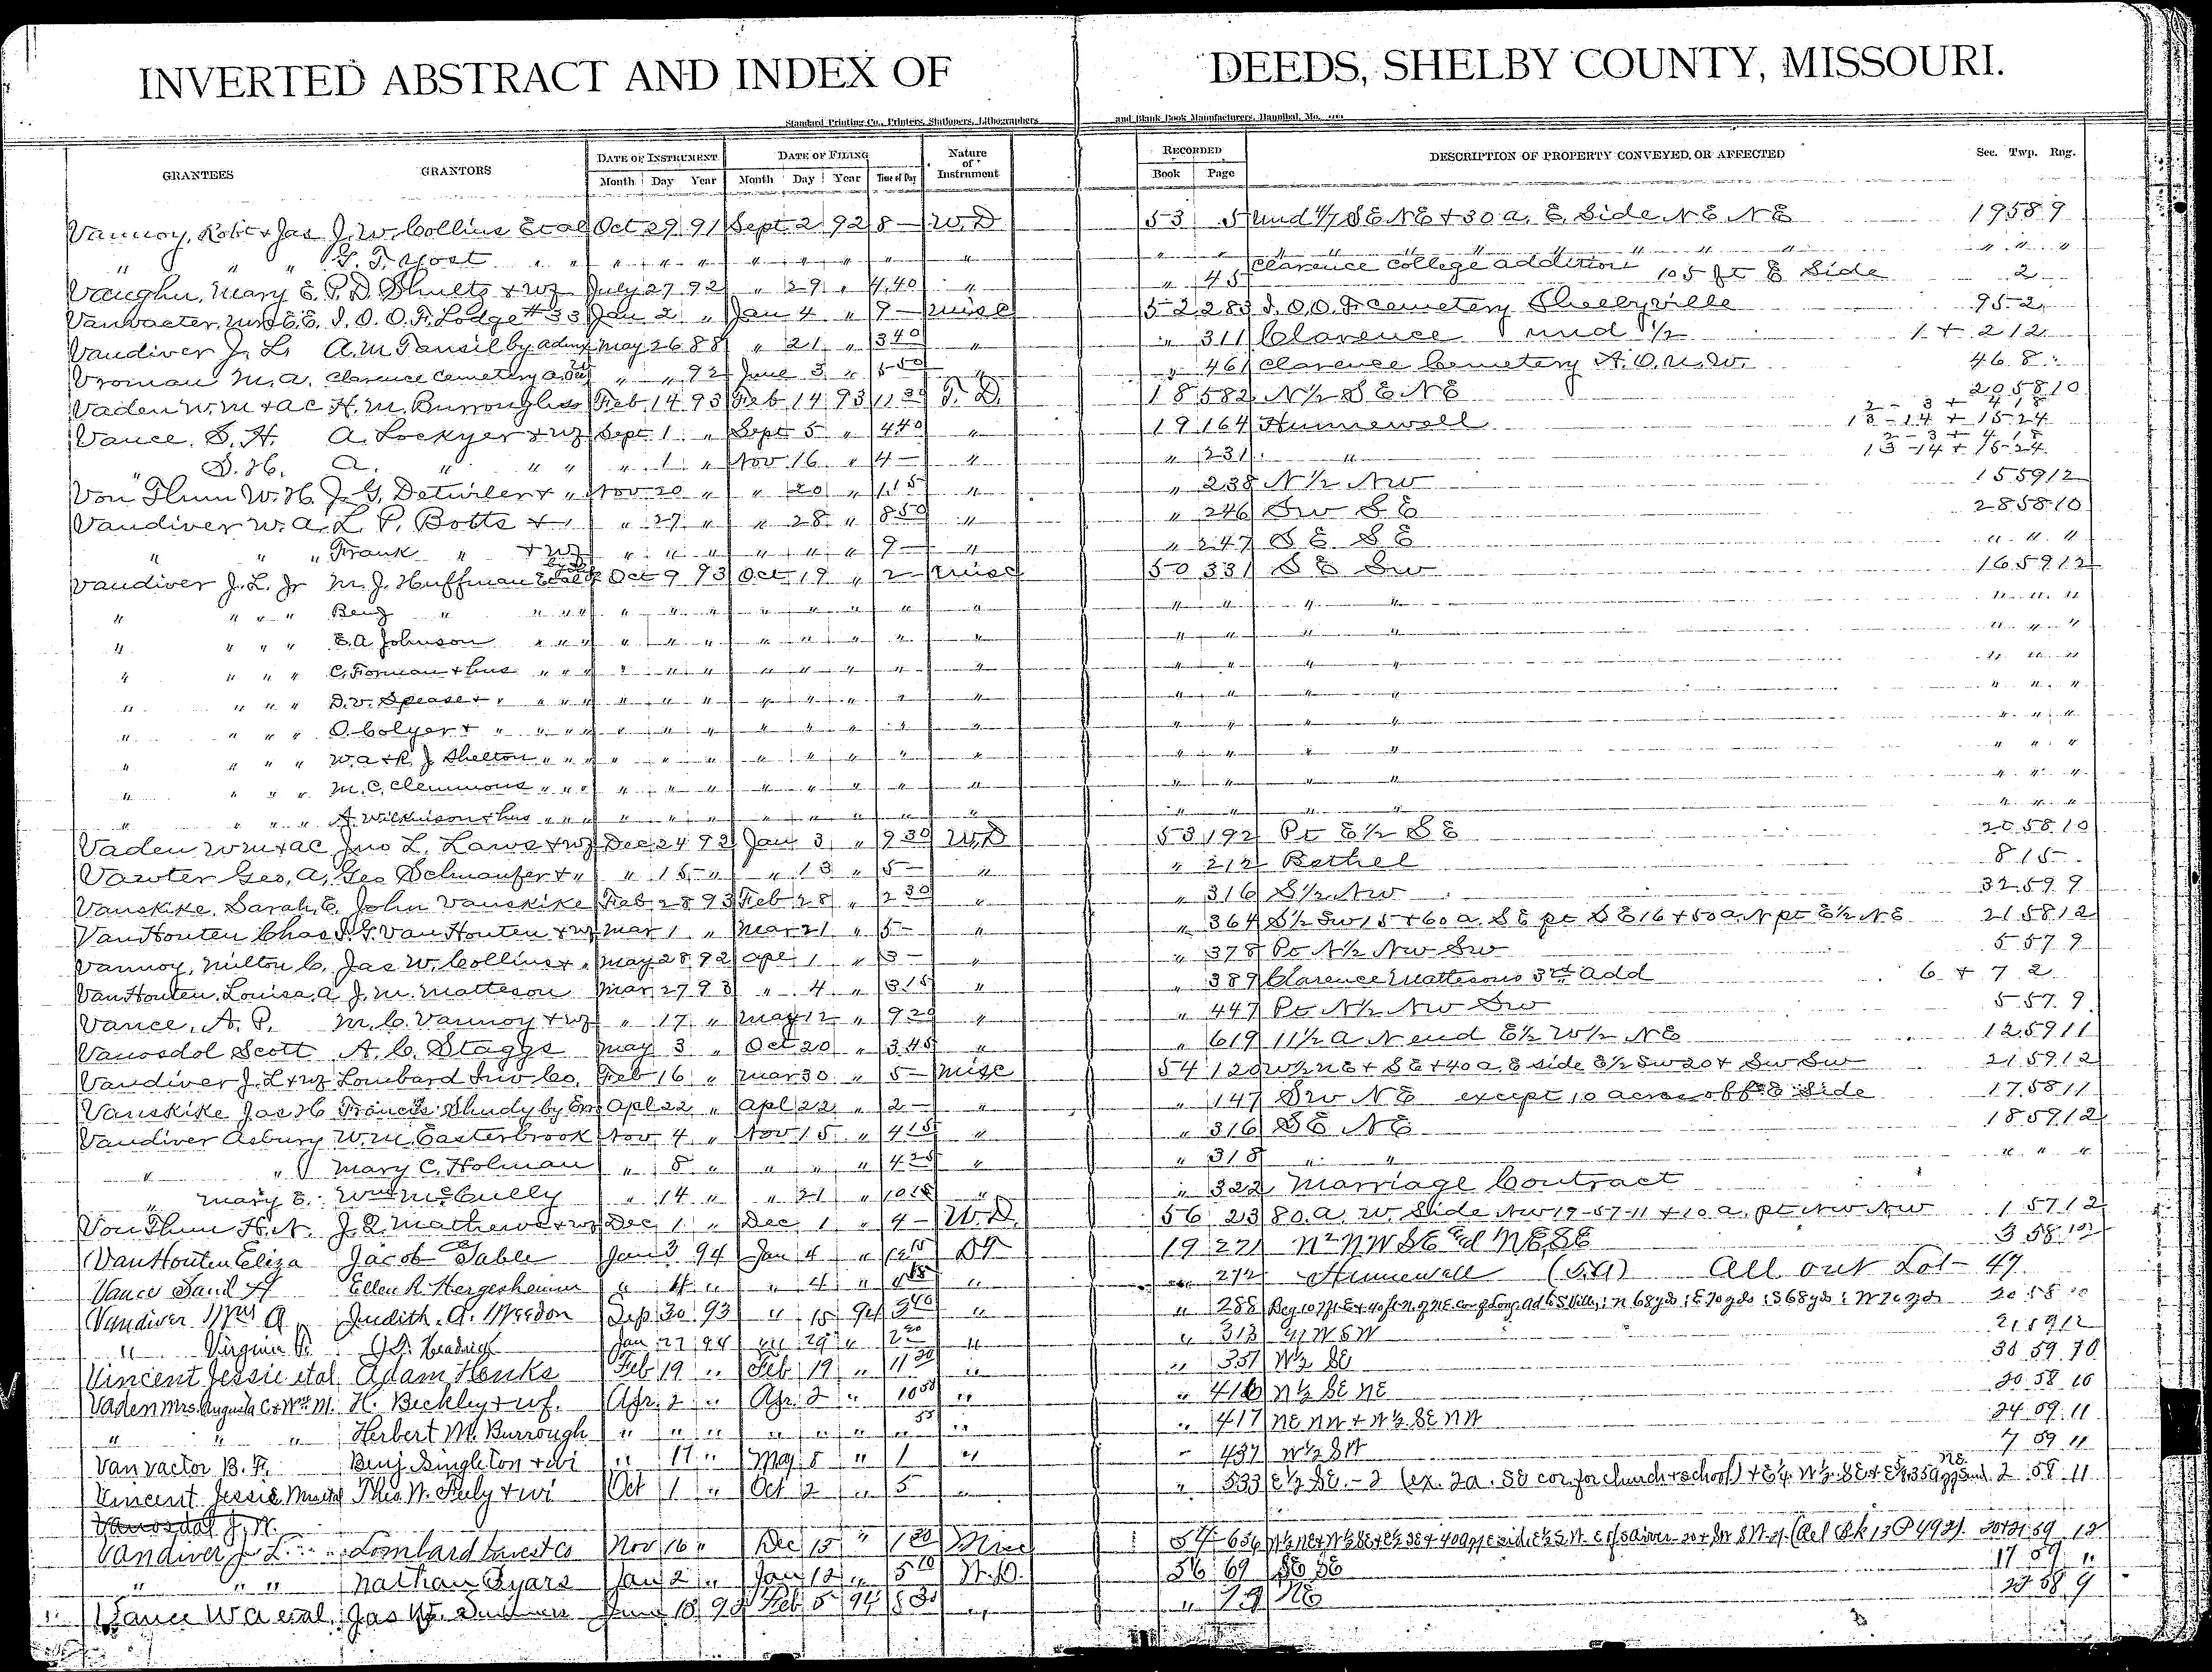 INVERTED ABSTRACT AND INDEX OF DEEDS, SHELBY COUNTY, MISSOURI.
Standard Printing Co., Printers, Stationers, Lithographers and Blank Book Manufacturers, Hannibal, Mo.
GRANTEES GRANTORS DATE OF INSTRUMENT DATE OF FILING Nature of Instrument RECORDED DESCRIPTION OF PROPERTY CONVEYED, OR AFFECTED Sec. Twp. Rng.
Month Day Year Month Day Year Time of Day Book Page
Vannoy, Robt + Jas J. W. Collins Et al Oct 29 91 Sept 2 92 8 — W.D 53 5 und 1/7 SE NE + 30 a. E. Side NE NE 19 58 9
" " " G. T. Yost " " " " " " " " " " " " " " " " " " " "
Vaughn, Mary E. P. D. Shultz + wf July 27 92 " 29 " 4.40 " " 45 Clarence College addition 105 ft E Side 2
Vanvacter, Mrs E.E. I. O. O. F. Lodge #33 Jan 2 " Jan 4 " 9 — Misc 52 283 I.O.O.F. cemetery Shelbyville 95-2
Vandiver J. L. A. M. Tansil by admr May 26 88 " 21 " 3 40 " " 311 Clarence und 1/2 1 + 2 12
Vroman M. A. Clarence Cemetery " " 92 June 3 " 5 50 " " 461 Clarence Cemetery A.O.U.W. 46 8
Vaden W.M + A C H. M. Burroughs Feb 14 93 Feb 14 93 11 30 T. D. 18 582 N 1/2 SE NE 20 58 10
Vance, S. H. A. Lockyer + wf Sept 1 " Sept 5 " 4 40 " 19 164 Hunnewell 2 - 3 + 4 18 13 - 14 + 15-24
" S. H. A. " " " " 1 " Nov 16 " 4 — " " 231 " 2 - 3 + 4 18 13 - 14 + 15-24
Von Thun W. H. J. G. Detwiler + " Nov 20 " " 20 " 1.15 " " 238 N 1/2 NW 15 59 12
Vandiver W. A. L. P. Botts + " " 27 " " 28 " 8 50 " " 246 SW SE 28 58 10
" " " Frank " + wf " " " " " " 9 — " " 247 SE SE " " "
Vandiver J. L. Jr M. J. Huffman Et al Oct 9 93 Oct 19 " 2 — Misc 50 331 SE SW 16 59 12
" " " " Benj " " " " " " " " " " " " " " " " " " " "
" " " " E. A Johnson " " " " " " " " " " " " " " " " " "
" " " " C. Forman + hus " " " " " " " " " " " " " " " " " "
" " " " D. V. Spease + " " " " " " " " " " " " " " " " " " "
" " " " O Colyer + " " " " " " " " " " " " " " " " " " "
" " " " W. A + R. J Shelton " " " " " " " " " " " " " " " " " "
" " " " M. C. Clemmons " " " " " " " " " " " " " " " " " "
" " " " A. Wilkinson + hus " " " " " " " " " " " " " " " " " "
Vaden Wm + A C Jno L. Laws + wf Dec 24 92 Jan 3 " 9 30 W.D 53 192 Pt E 1/2 SE 20 58 10
Vawter Geo. A. Geo Schnaufer + " " 15 " " 13 " 5 — " " 212 Bethel 8 15
Vanskike, Sarah E. John Vanskike Feb 28 93 Feb 28 " 2 30 " " 316 S 1/2 NW 32 59 9
Van Houten Chas I. G. Van Houten + wf Mar 1 " Mar 21 " 5 — " " 364 S 1/2 SW 15 + 60 a. SE pt SE 16 + 50 a. N pt E 1/2 NE 21 58 12
Vannoy, Milton C. Jas W. Collins + " May 28 92 Apl 1 " 3 — " " 378 Pt N 1/2 NW SW 5 57 9
Van Houten, Louisa, A J. M. Matteson Mar 27 93 " 4 " 3 15 " " 389 Clarence Mattesons 3rd Add 6 + 7 2
Vance, A. P. M. C. Vannoy + wf " 17 " May 12 " 9 20 " " 447 Pt N 1/2 NW SW 5 57 9
Vanosdol Scott A. C. Staggs May 3 " Oct 20 " 3 45 " " 619 11 1/2 a N end E 1/2 W 1/2 NE 12 59 11
Vandiver J. L + wf Lombard Inv Co. Feb 16 " Mar 30 " 5 — Misc 54 120 W 1/2 NE + SE + 40 a. E side E 1/2 SW 20 + SW SW 21 59 12
Vanskike Jas H Francis Shudy by Apl 22 " Apl 22 " 2 — " " 147 SW NE except 10 acres off E Side 17 58 11
Vandiver Asbury W. M. Easterbrook Nov 4 " Nov 15 " 4 15 " " 316 SE NE 18 59 12
" " Mary C. Holman " 8 " " " " 4 25 " " 318 " " " " "
" Mary E. Wm McCully " 14 " " 21 " 10 15 " " 322 Marriage Contract
Von Thun H. N. J. Q. Mathews + wf Dec 1 " Dec 1 " 4 — W.D. 56 23 80. a. W. Side NW 19-57-11 + 10 a. pt NW NW 1 57 12
Van Houten Eliza Jacob Table Jan 3 94 Jan 4 " 12 15 DT 19 271 N 2 NW SE and NE SE 3 58 10
Vance Saml H Ellen R Hergesheimer " 4 " " 4 " " " 272 Hunnewell (S.A) All out Lot - 47
Vandiver Mrs A Judith. A. Weedon Sep 30 93 " 15 94 3 40 " " 288 Beg 10 7 ft E + 40 ft N. of NE. cor of Long. Ad to S Ville; N 68 yds; E 70 yds; S 68 yds; W 70 yds 20 58 10
" Virginia Jan 27 94 " 29 " 2 20 " " 313 W SW 21 59 12
Vincent Jessie et al Adam Henks Feb 19 " Feb 19 " 11 20 " " 357 W 1/2 SE 30 59 10
Vaden Mrs. Augusta C + Wm M. H. Beckley + wf. Apr. 2 " Apr. 2 " 10 50 " " 416 N 1/2 SE NE 20 58 10
" " " Herbert M. Burrough " " " " " " 55 " " 417 NE NW + N 1/2 SE NW 24 59 11
Van vactor B. F. Benj. Singleton + wi " 17 " May 5 " 1 " " 437 W 1/2 SW 7 59 11
Vincent Jessie Theo W. Feely + wi Oct 1 " Oct 2 " 5 " " 533 E 1/2 SE. - 2 (ex. 2 a. SE cor. for church + school) 2 58 11
Vanosdal J. W.
Vandiver J. L. Lombard Invest Co Nov 16 " Dec 15 " 1 20 Misc 54 656 (Rel Bk 13 P 492). 20+21 59 12
" " " Nathan Byars Jan 2 " Jan 12 " 5 10 W. D. 56 69 SE SE 17 59 "
Vance W A et al. Jas June 18 93 Feb 5 94 8 30 " " 79 NE 23 58 9